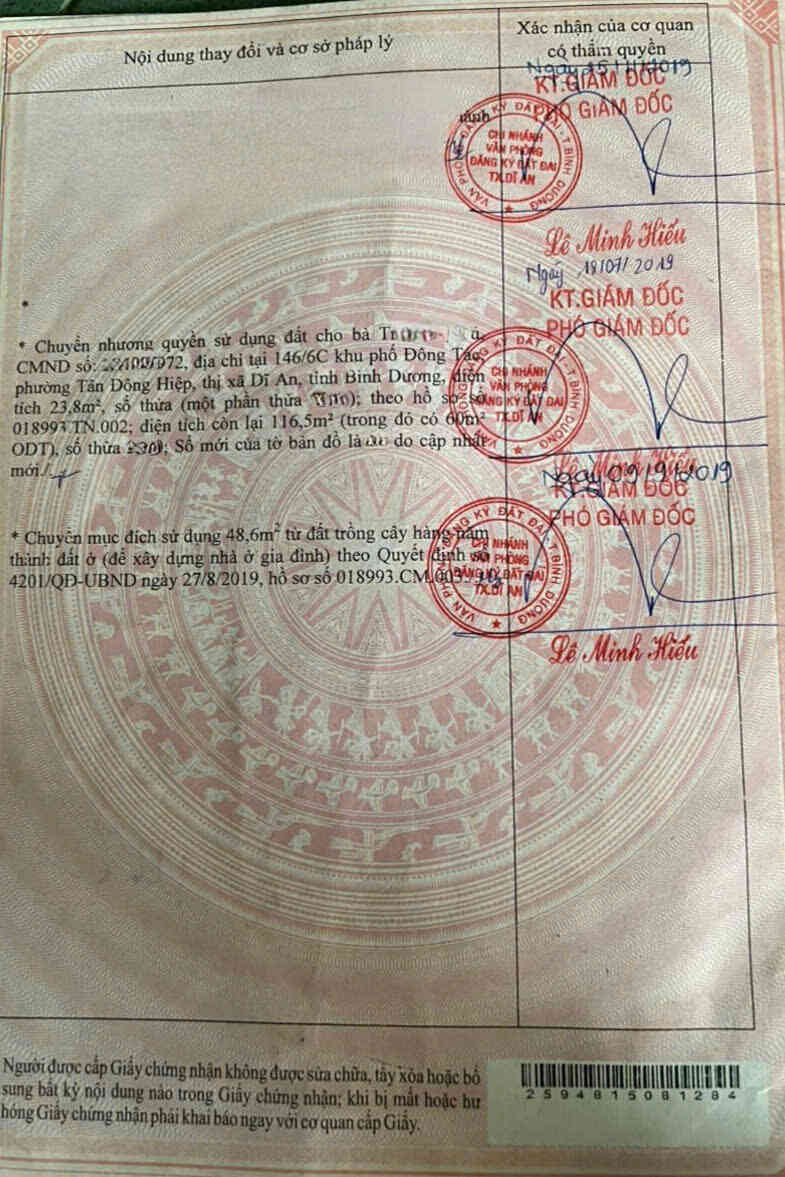 Nội dung thay đổi và cơ sở pháp lý
Xác nhận của cơ quan
có thẩm quyền
KT.GIÁM ĐỐC
PHÓ GIÁM ĐỐC
CHI NHÁNH
VĂN PHÒNG
ĐĂNG KÝ ĐẤT ĐAI
TX.DĨ AN
VĂN PHÒNG ĐĂNG KÝ ĐẤT ĐAI - T.BÌNH DƯƠNG
Lê Minh Hiếu
Ngày 18/07/2019
KT.GIÁM ĐỐC
PHÓ GIÁM ĐỐC
* Chuyển nhượng quyền sử dụng đất cho bà
CMND số: địa chỉ tại 146/6C khu phố Đông Tác,
phường Tân Đông Hiệp, thị xã Dĩ An, tỉnh Bình Dương, diện
tích 23,8m², số thửa (một phần thửa); theo hồ sơ số
018993.TN.002; diện tích còn lại 116,5m² (trong đó có 60m²
ODT), số thửa; Số mới của tờ bản đồ là do cập nhật
mới./.
CHI NHÁNH
VĂN PHÒNG
ĐĂNG KÝ ĐẤT ĐAI
TX.DĨ AN
Lê Minh Hiếu
Ngày 09/9/2019
KT.GIÁM ĐỐC
PHÓ GIÁM ĐỐC
* Chuyển mục đích sử dụng 48,6m² từ đất trồng cây hàng năm
thành đất ở (để xây dựng nhà ở gia đình) theo Quyết định số
4201/QĐ-UBND ngày 27/8/2019, hồ sơ số 018993.CM.003.
CHI NHÁNH
VĂN PHÒNG
ĐĂNG KÝ ĐẤT ĐAI
TX.DĨ AN
Lê Minh Hiếu
Người được cấp Giấy chứng nhận không được sửa chữa, tẩy xóa hoặc bổ
sung bất kỳ nội dung nào trong Giấy chứng nhận; khi bị mất hoặc hư
hỏng Giấy chứng nhận phải khai báo ngay với cơ quan cấp Giấy.
2594815081284